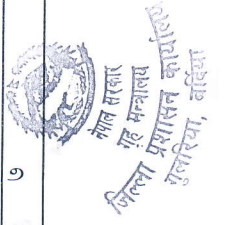 नेपाल सरकार
गृह मन्त्रालय
जिल्ला प्रशासन कार्यालय
गुलरिया, बर्दिया
७